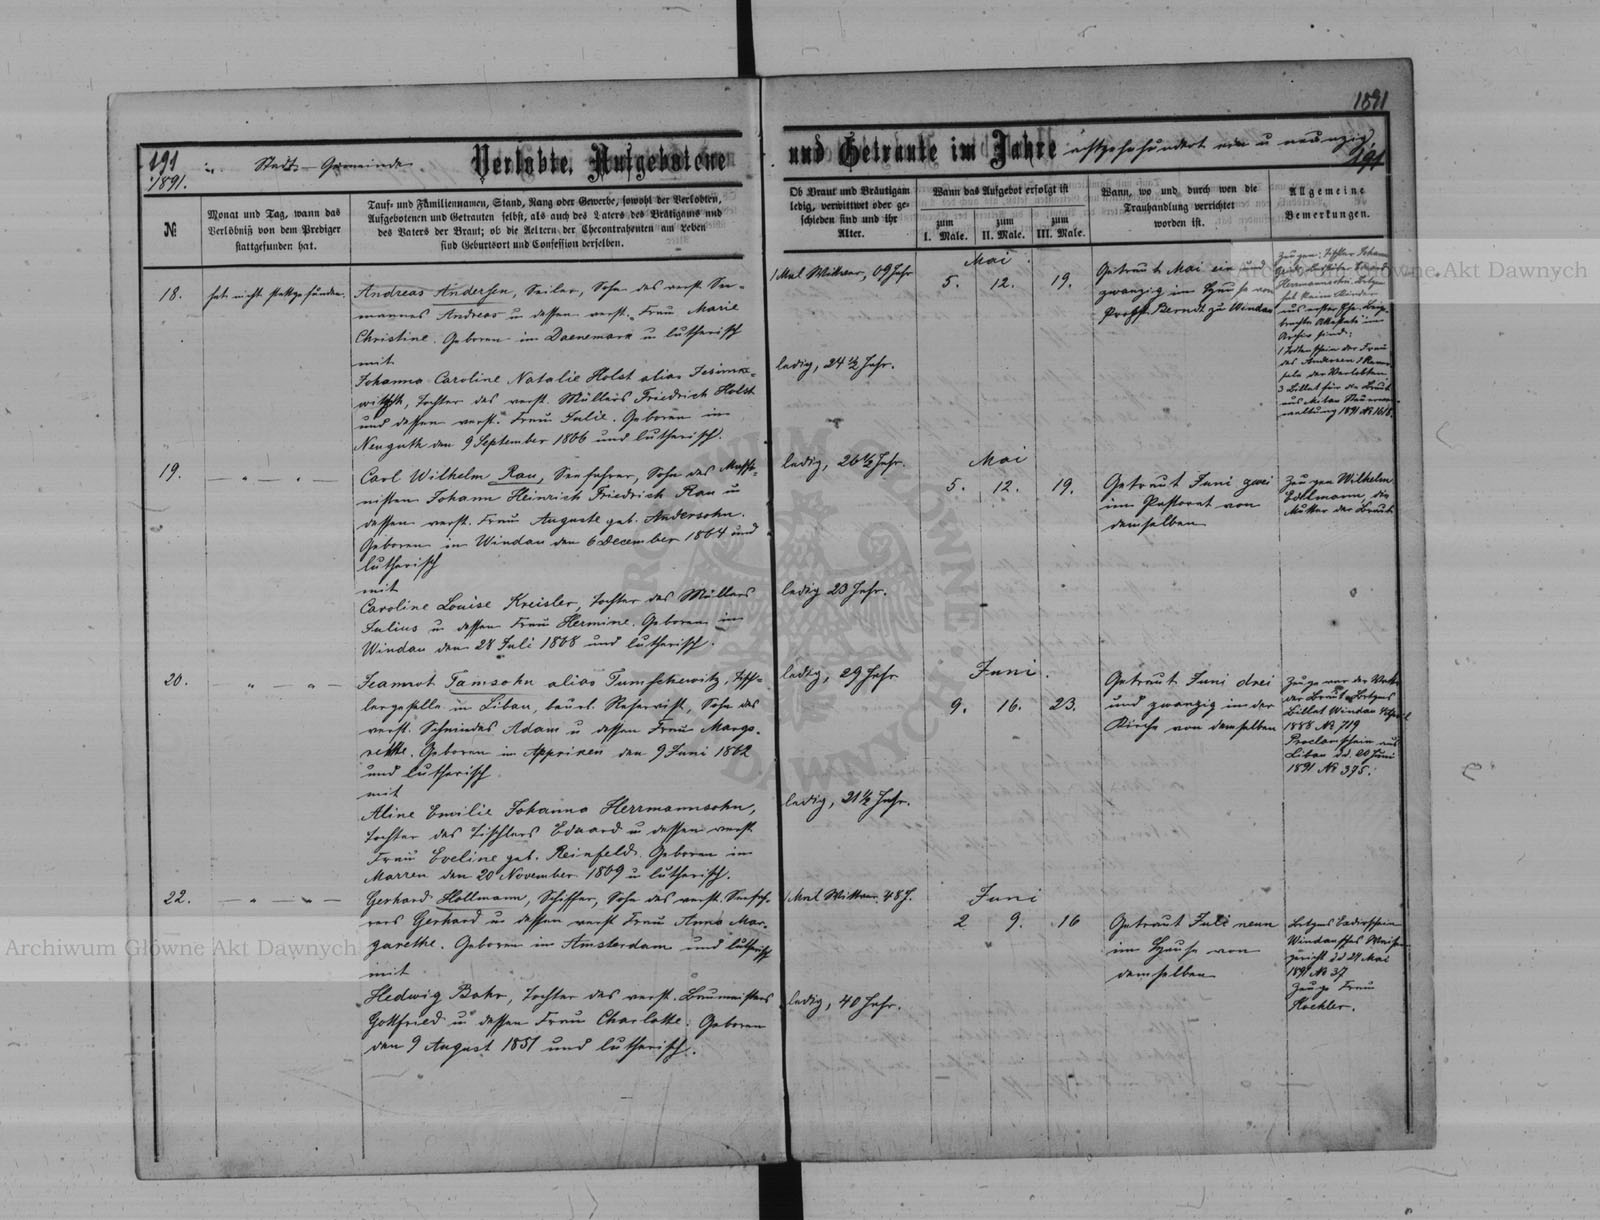 1891
191
1891.
Stadt-Gemeinde
Verlobte, Aufgebotene
und Getraute im Jahre
191
№
Monat und Tag, wann das
Verlöbniß von dem Prediger
stattgefunden hat.
Tauf- und Familiennamen, Stand, Rang oder Gewerbe, sowohl der Verlobten,
Aufgebotenen und Getrauten selbst, als auch des Vaters des Bräutigams und
des Vaters der Braut; ob die Aeltern der Ehecontrahenten am Leben
sind Geburtsort und Confession derselben.
Ob Braut und Bräutigam
ledig, verwittwet oder ge-
schieden sind und ihr
Alter.
Wann das Aufgebot erfolgt ist
zum
I. Male.
zum
II. Male.
zum
III. Male.
Wann, wo und durch wen die
Trauhandlung verrichtet
worden ist.
Allgemeine
Bemerkungen.
18.
hat nicht stattgefunden.
Andreas Andersen, Seiler, Sohn des verst. See-
mannes Andreas u dessen verst. Frau Marie
Christine. Geboren in Daenemark u lutherisch
mit
Johanna Caroline Natalie Holst alias
witsch, Tochter des verst. Müllers Friedrich Holst
und dessen verst. Frau Julie. Geboren in
Neuguth den 9 September 1866 und lutherisch.
ledig, 24 1/2 Jahr.
Mai.
5. 12. 19.
Getraut Mai ein und
zwanzig im Hause von
Propst Berndt zu Windau
19.
Carl Wilhelm Rau, Seefahrer, Sohn des Maschi-
nisten Johann Heinrich Friedrich Rau u
dessen verst. Frau Auguste geb. Andersohn.
Geboren in Windau den 6 December 1864 und
lutherisch
mit
Caroline Louise Kreisler, Tochter des Müllers
Julius u dessen Frau Hermine. Geboren in
Windau den 28 Juli 1868 und lutherisch.
ledig, 26 1/2 Jahr.
ledig 23 Jahr.
Mai
5. 12. 19.
Getraut Juni zwei
im Pastorat von
demselben
Zeugen Wilhelm
Edelmann, die
Mutter der Braut
20.
Jeannot Tamsohn alias Tumschewitz, Tisch-
lergeselle in Libau, beurl. Reservist, Sohn des
verst. Schmiedes Adam u dessen Frau Marga-
rethe. Geboren in Appricken den 9 Juni 1862
und lutherisch
mit
Aline Emilie Johanna Herrmannsohn,
Tochter des Tischlers Eduard u dessen verst.
Frau Eveline geb. Reinfeld. Geboren in
Marren den 20 November 1869 u lutherisch.
ledig, 29 Jahr
ledig, 21 1/2 Jahr.
Juni.
9. 16. 23.
Getraut Juni drei
und zwanzig in der
Kirche von demselben
Zeuge war der Vater
der Braut
Billet Windau
1888 № 719
Proclamschein aus
Libau dd 20 Juni
1891 № 375.
22.
Gerhard Hollmann, Schiffer, Sohn des verst. Seefah-
rers Gerhard u dessen verst Frau Anna Mar-
garethe. Geboren in Amsterdam und lutherisch
mit
Hedwig Bahr, Tochter des verst. Baumeisters
Gottfried u dessen Frau Charlotte. Geboren
den 9 August 1851 und lutherisch.
1 Mal Wittwer, 48 J.
ledig, 40 Jahr.
Juni
2 9. 16
Getraut Juli neun
im Hause von
demselben
Windausches Waisen-
gericht dd 24 Mai
1891 № 37
Zeuge Frau
Koehler.
Archiwum Główne Akt Dawnych
Archiwum Główne Akt Dawnych
ARCHIWUM GŁÓWNE AKT DAWNYCH